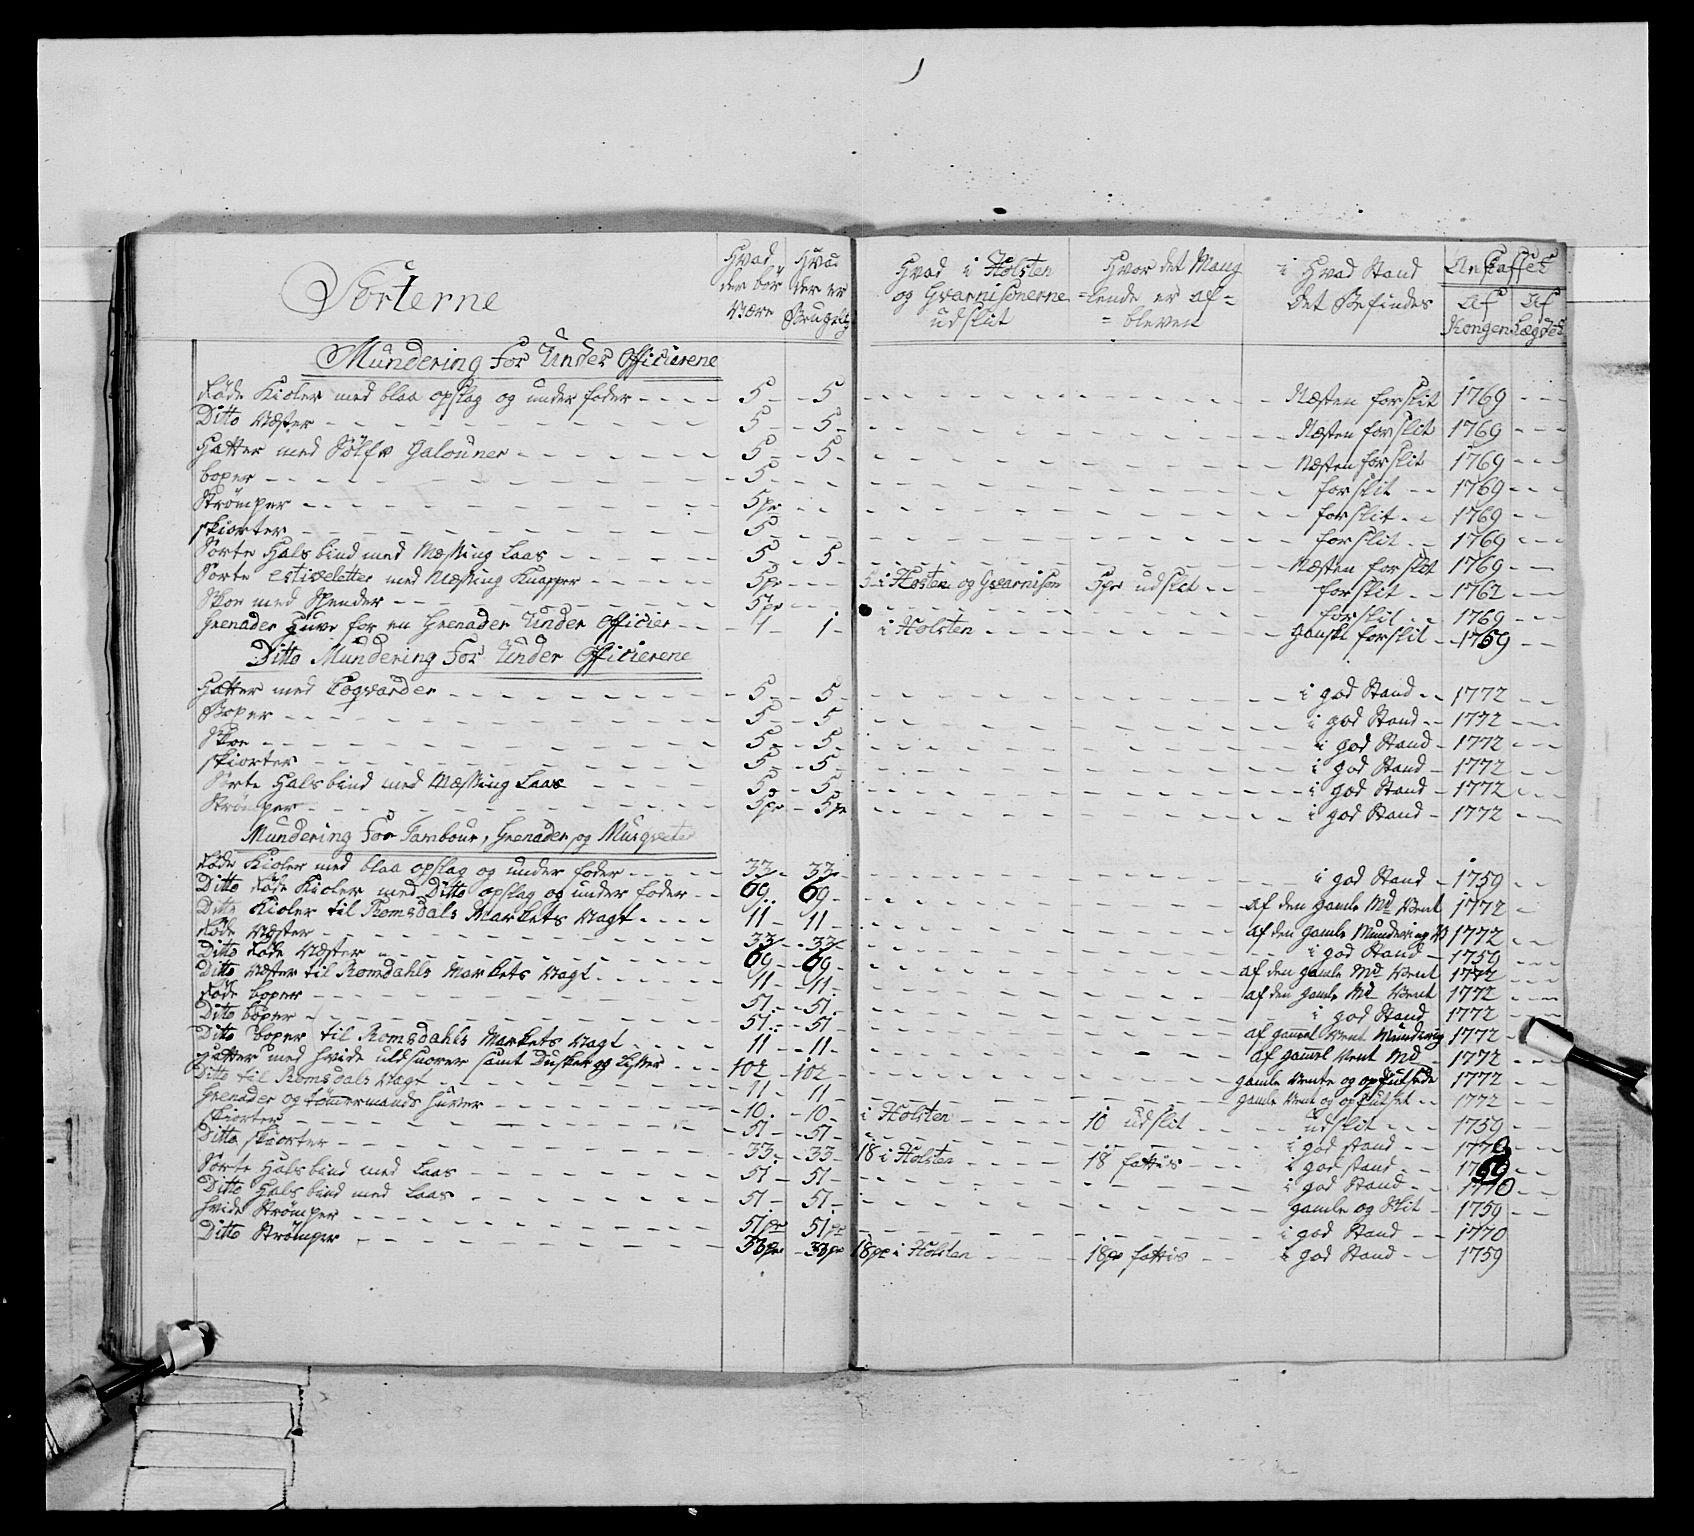 Sorterne
Hvad der bör Være
Hvad der er Brugelig
Hvad i Holsten og Gvarnisonerne udslit
Hvor det Mang=lende er af=bleven
i Hvad Stand det Befindes
Anskaffet
Af Kongen
Af Lægdet
Mundering For Under Officierene
Röde Kioler med blaa opslag og under foder 5 5 Næsten forslit 1769
Ditto Væster 5 5 Næsten forslit 1769
Hatter med Sölfv Galouner 5 5 Næsten forslit 1769
boxer 5 forslit 1769
Strömper 5pr forslit 1769
Skiorter 5 forslit 1769
Sorte Halsbind med Messing Laas 5 5 Næsten forslit 1769
Sorte estiveletter med Messing Knapper 5pr 5 i Holsten og Gvarnison 5pr udslit forslit 1762
Skoe med Spender 5pr forslit 1769
Grenader Huve for en Grenader Under Officier 1 1 i Holsten ganske forslit 1759
Ditto Mundering For Under Officierene
Hatter med Cogvarder 5 5 i god Stand 1772
Boxer 5 5 i god Stand 1772
Skoe 5 5 i god Stand 1772
Skiorter 5 5 i god Stand 1772
Sorte Halsbind med Messing Laas 5 5 i god Stand 1772
Strömper 5pr 5pr i god Stand 1772
Mundering For Tambour, Grenader, og Musqveter
Röde Kioler med blaa opslag og under foder 33 33 i god Stand 1759
Ditto Röde Kioler med Ditto opslag og under foder 69 69 af den gamle Md Vent 1772
Ditto Kioler til Romsdals Markets Vagt 11 11 af den gamle Mundering 1772
Röde Væster 33 33 i god Stand 1759
Ditto Röde Væster 69 69 af den gamle Md Vent 1772
Ditto Væster til Romsdahls Markets Vagt 11 11 af den gamle Md Vent 1772
Röde boxer 51 51 i god Stand 1772
Ditto boxer 51 51 af gamel Vent Mundering 1772
Ditto boxer til Romsdahls Markets Vagt 11 11 af gamel Vent Md 1772
Hatter med hvide uldsnorer samt Dusker og Lidser 102 102 gamle Vente og opputsede 1772
Ditto til Romsdals Vagt 11 11 gamle Vent og opputset 1772
Grenader og tömmermands huver 10 10 i Holsten 10 udslit udslit 1759
Skiorter 51 51 i god stand 1770
Ditto skiorter 33 33 18 i Holsten 18 fattis i god stand 1759
Sorte Halsbind med Laas 51 51 i god Stand 1770
Ditto Halsbind med Laas 51 51 gamle og Slit 1759
hvide Strömper 51pr 51pr i god Stand 1770
Ditto Strömper 33pr 33pr 18pr i Holsten 18pr fattis i god Stand 1759